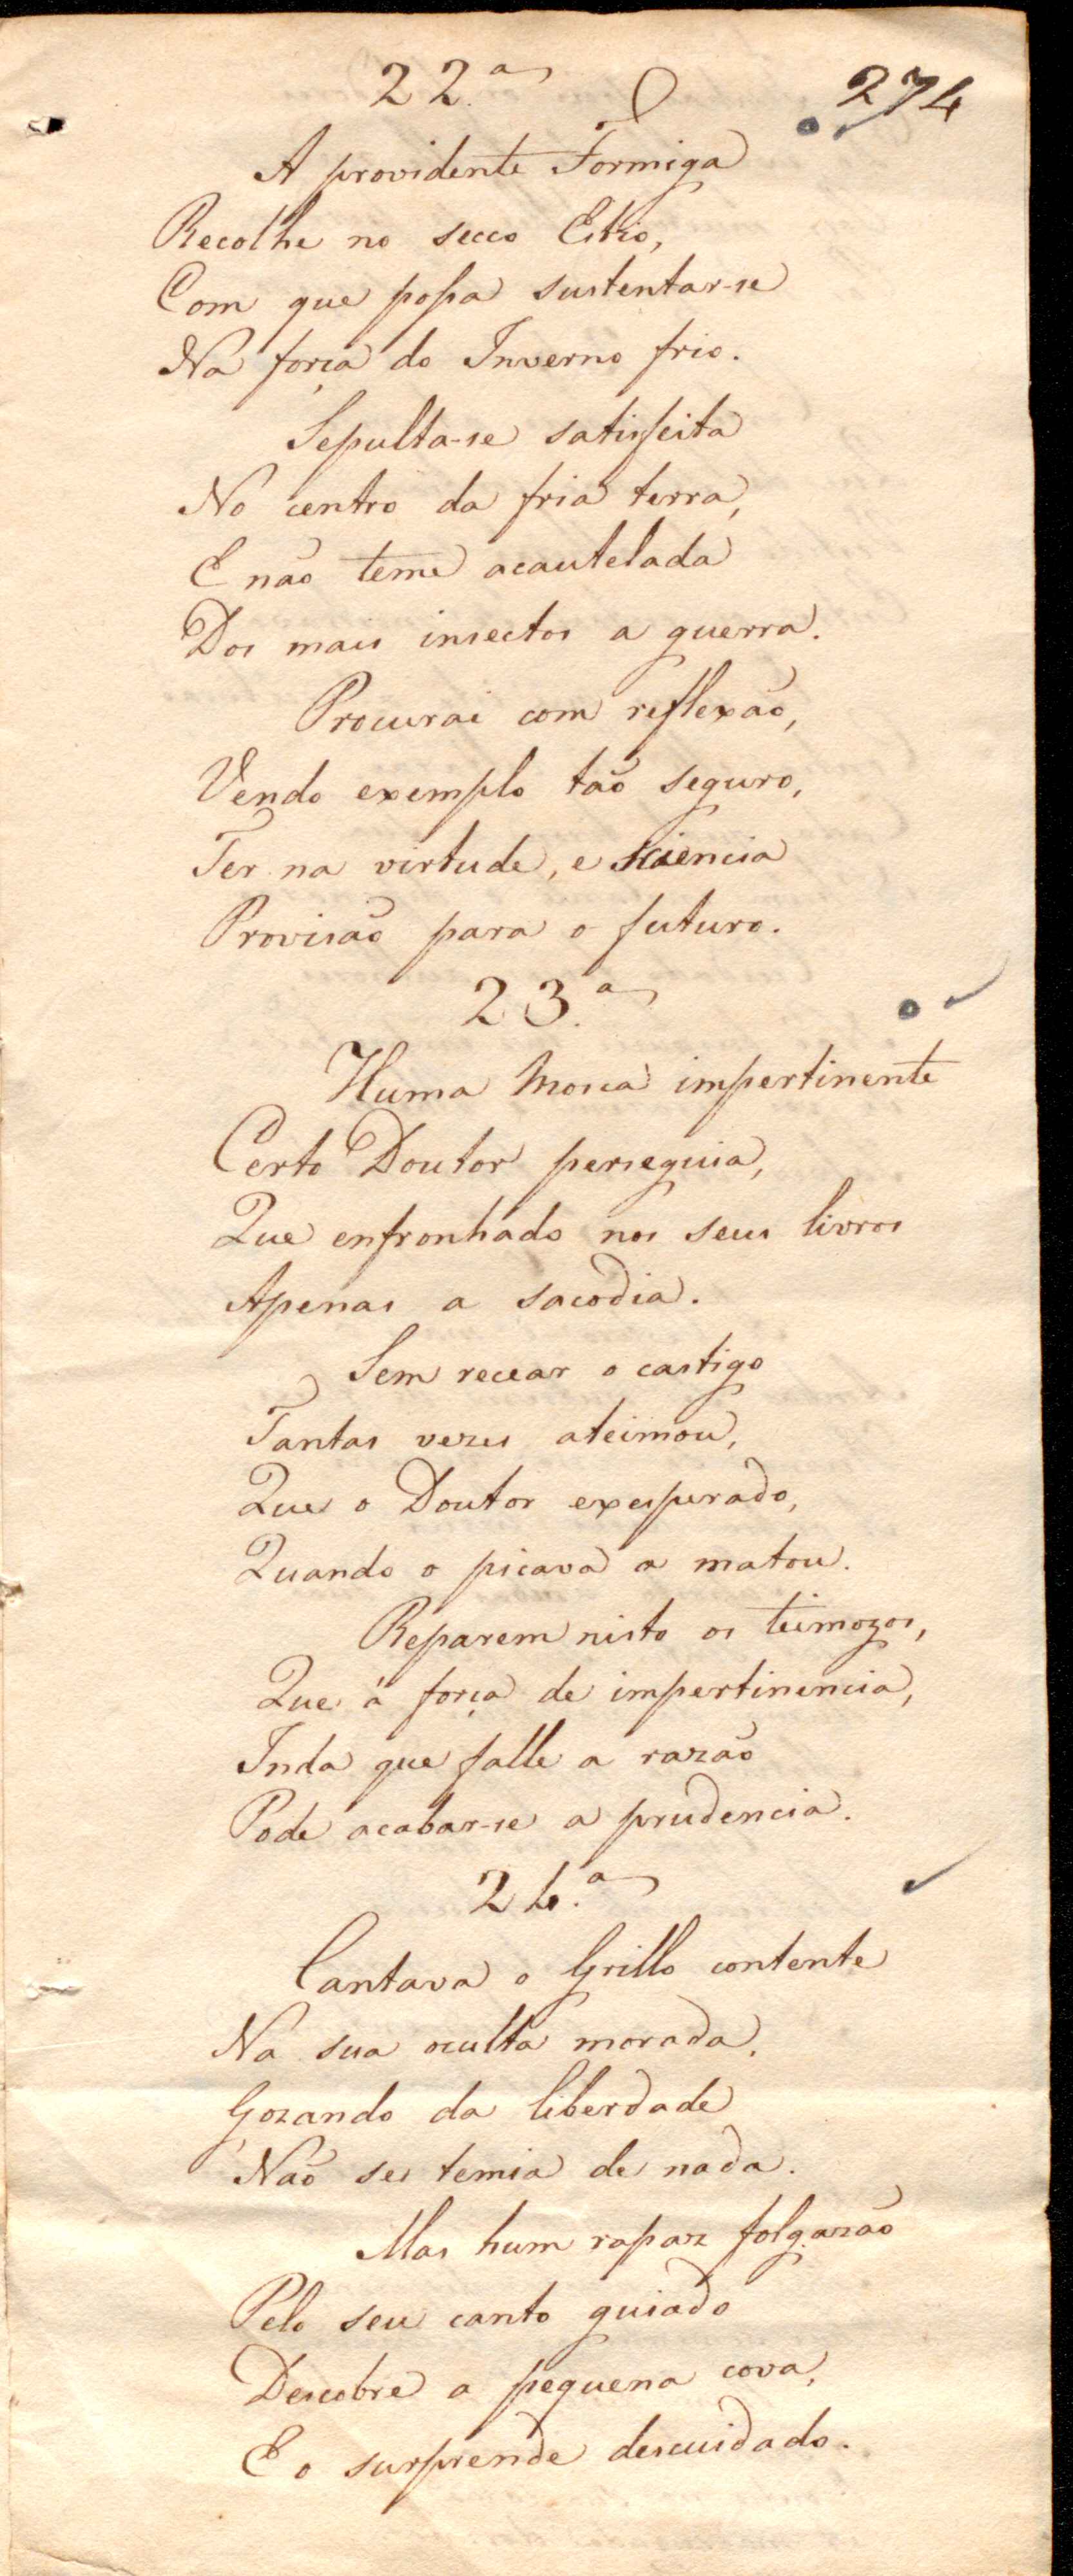 22.ª
274
A providente Formiga
Recolhe no secco Estio,
Com que possa sustentar-se
Na força do Inverno frio.
Sepulta-se satisfeita
No centro da fria terra,
E não teme acautelada
Dos mais insectos a guerra.
Procurai com reflexão,
Vendo exemplo tão seguro,
Ter na virtude, e sciencia
Provisão para o futuro.
23.ª
Huma Mosca impertinente
Certo Doutor perseguia,
Que enfronhado nos seus livros
Apenas a sacodia.
Sem recear o castigo
Tantas vezes ateimou,
Que o Doutor exesperado,
Quando o picava a matou.
Reparem nisto os teimozos,
Que á força de impertinencia,
Inda que falle a razão
Pode acabar-se a prudencia.
24.ª
Cantava o Grillo contente
Na sua oculta morada,
Gozando da liberdade
Não se temia de nada.
Mas hum rapaz folgazão
Pelo seu canto guiado
Descobre a pequena cova,
E o surprende descuidado.